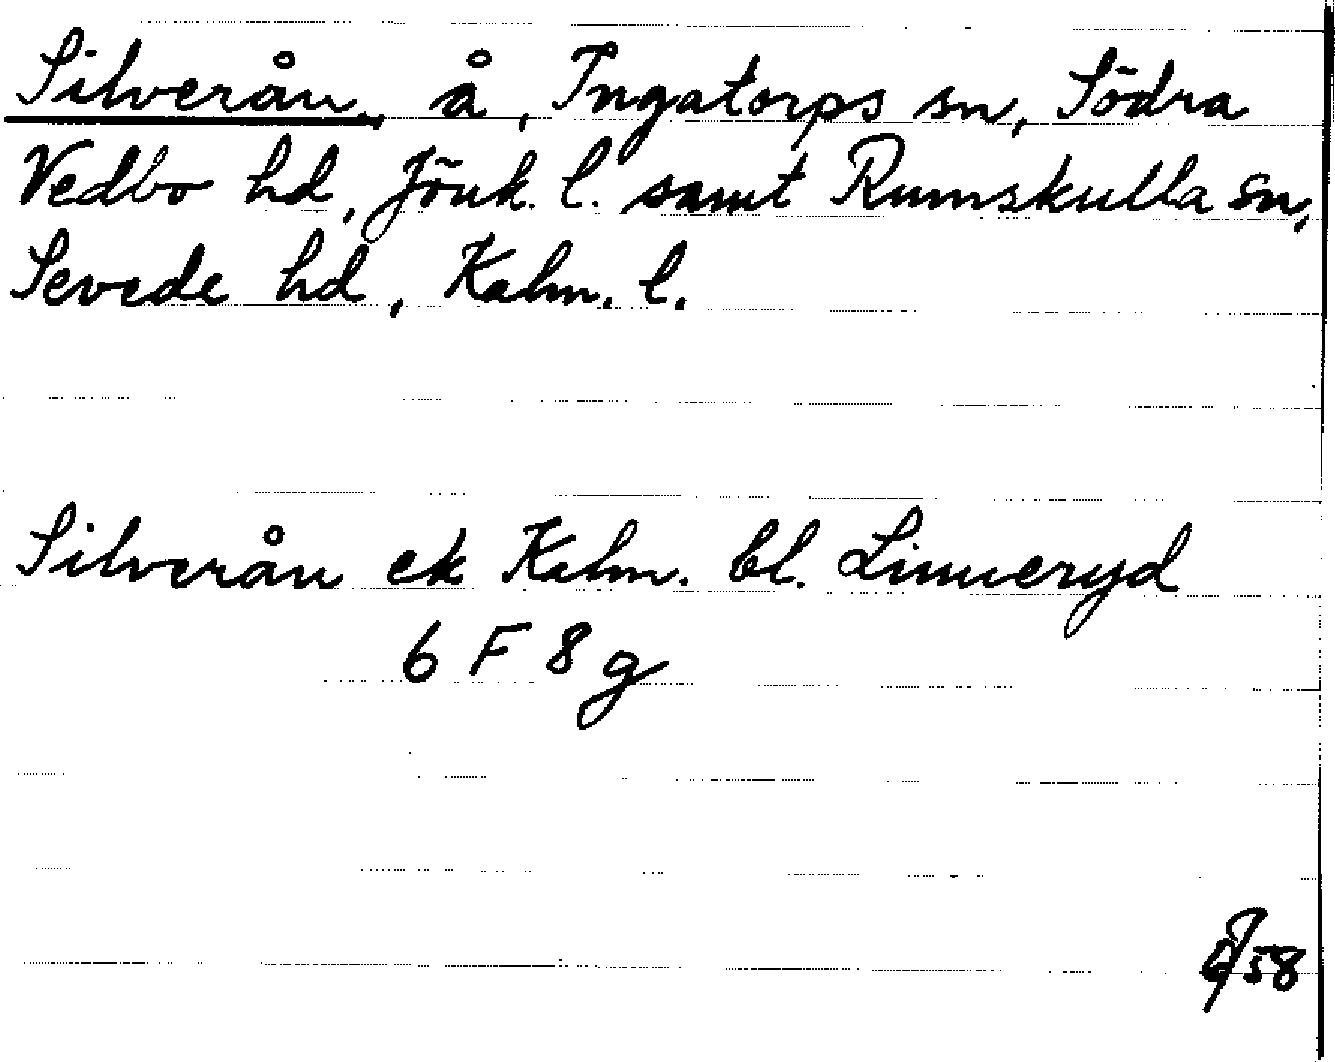 Silverån, å, Ingatorps sn, Södra
Vedbo hd, Jönk. l. samt Rumskulla sn,
Sevede hd, Kalm. l.
Silverån ek Kalm. bl. Linneryd
6 F 8 g
58